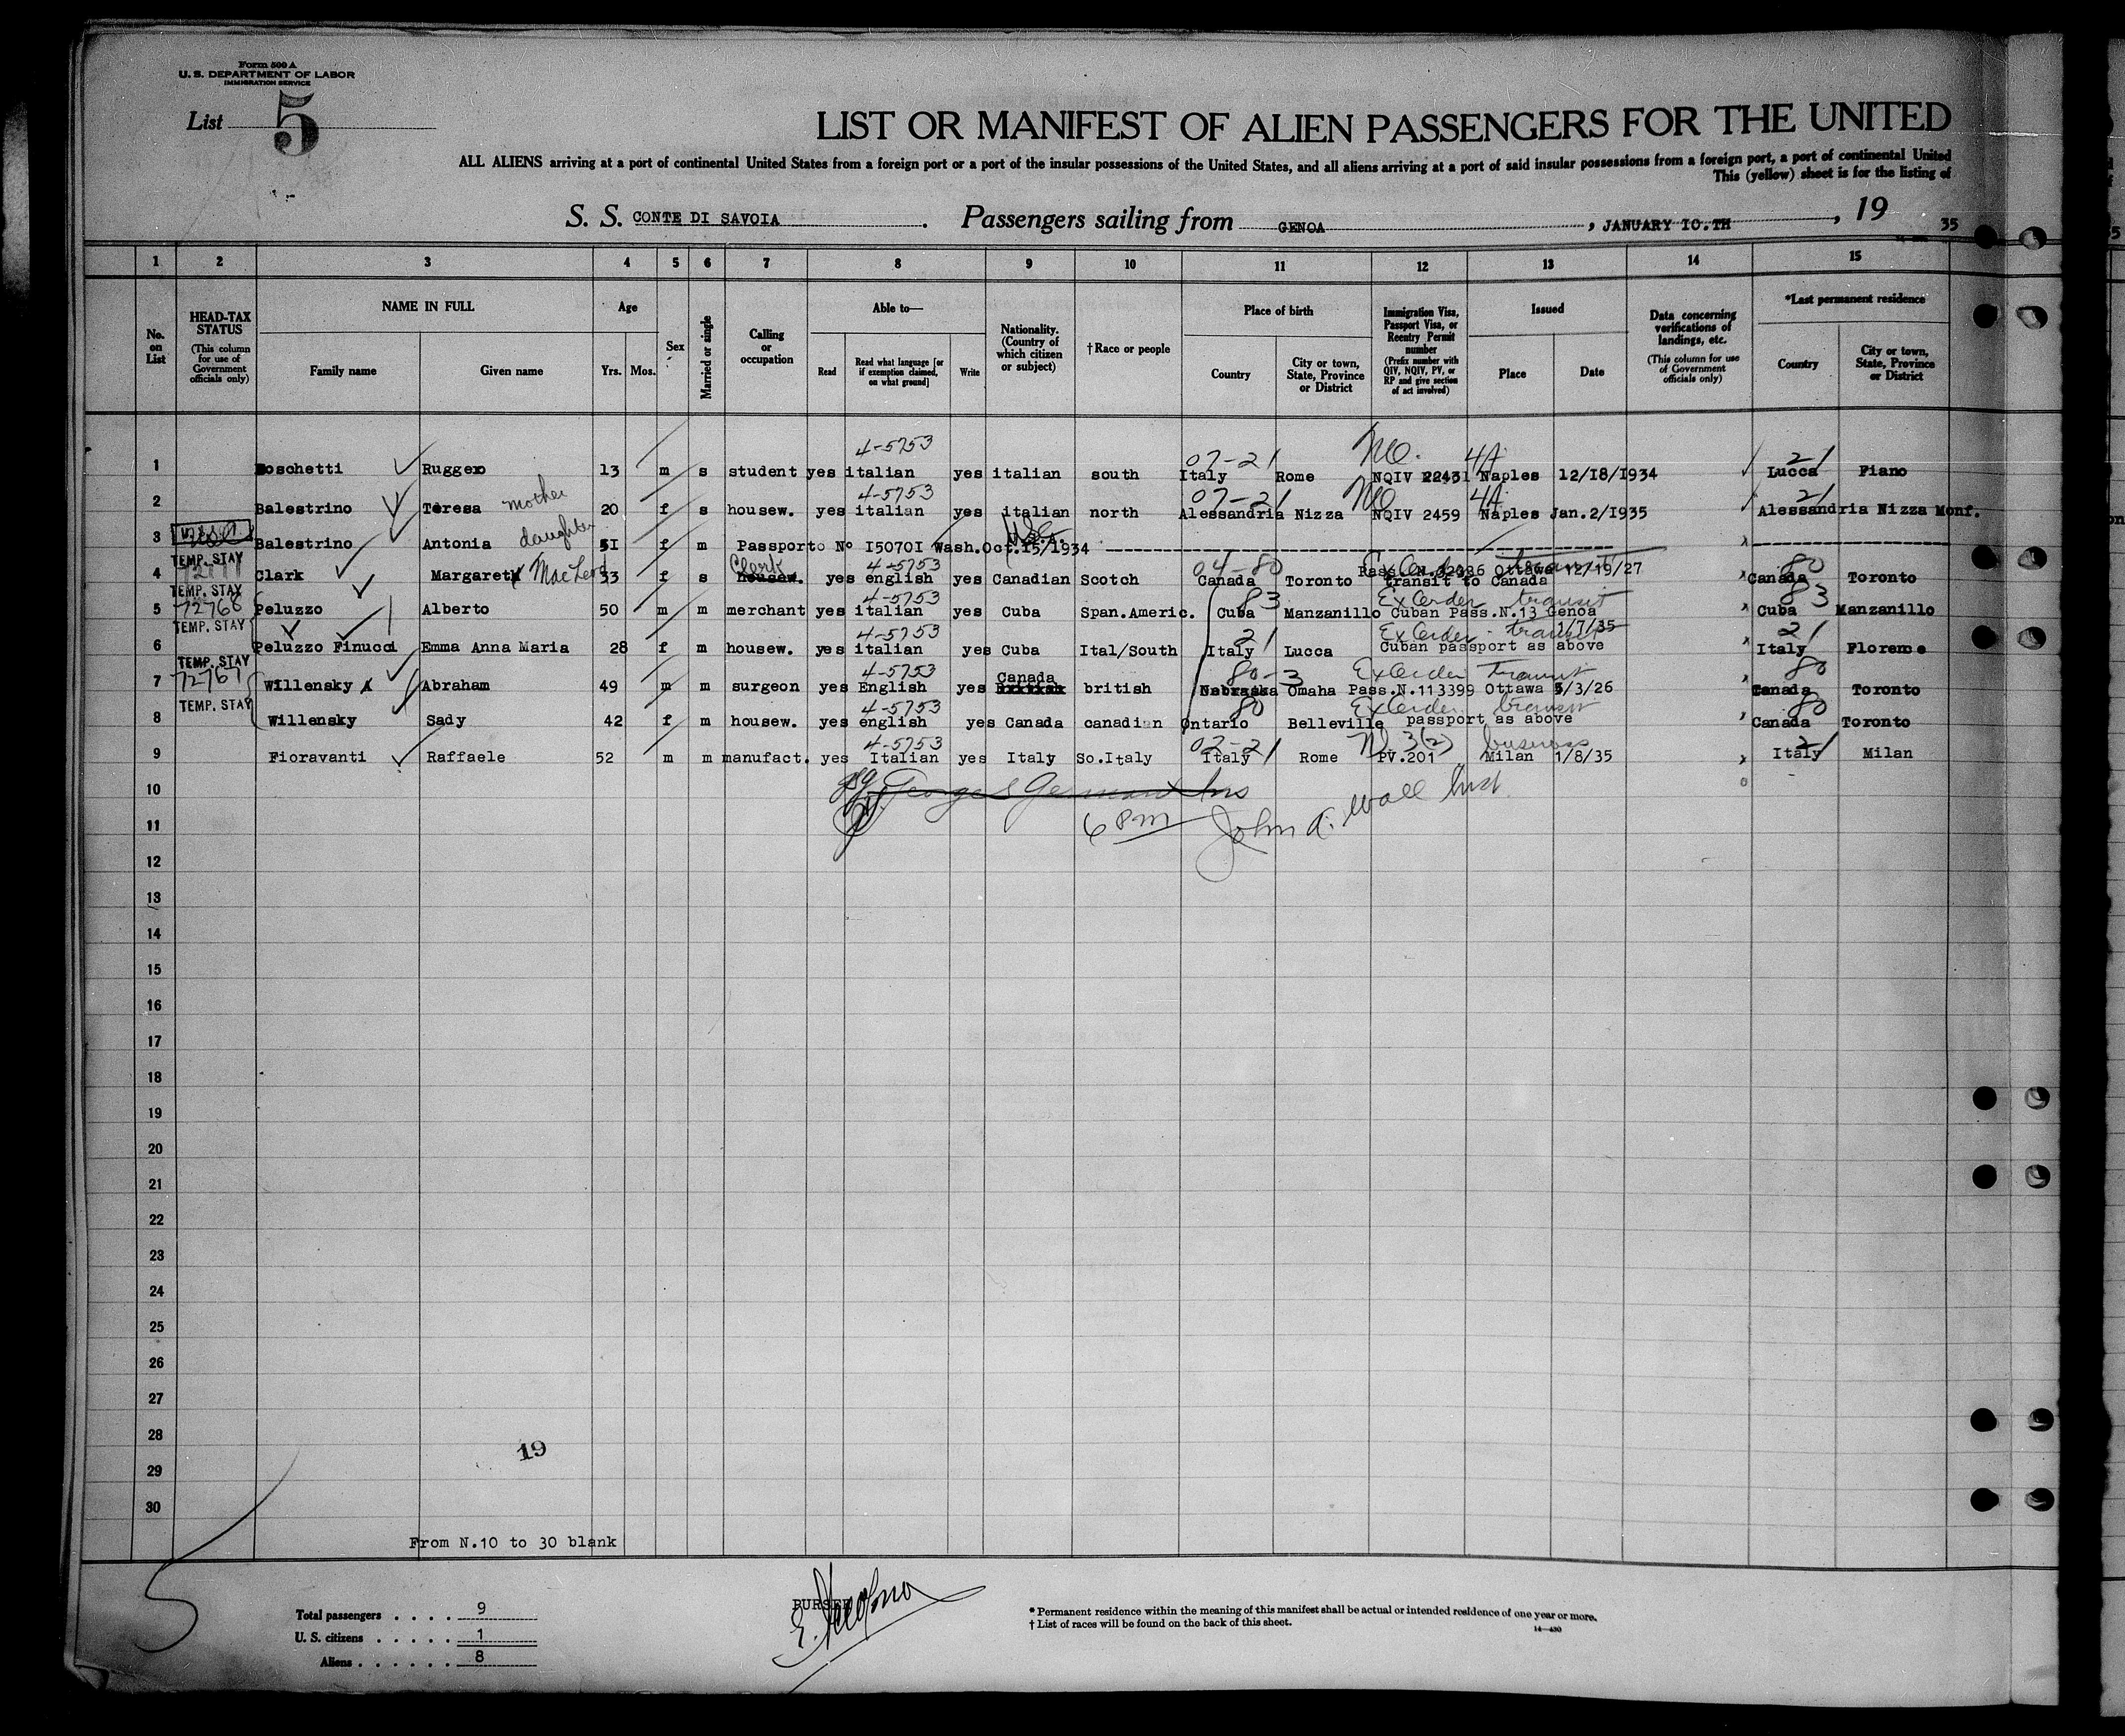 Form 500 A
U. S. DEPARTMENT OF LABOR
IMMIGRATION SERVICE
List 5
LIST OR MANIFEST OF ALIEN PASSENGERS FOR THE UNITED
ALL ALIENS arriving at a port of continental United States from a foreign port or a port of the insular possessions of the United States, and all aliens arriving at a port of said insular possessions from a foreign port, a port of continental United
This (yellow) sheet is for the listing of
S. S. CONTE DI SAVOIA. Passengers sailing from GENOA, JANUARY IO.TH, 19 35
1 2 3 4 5 6 7 8 9 10 11 12 13 14 15
No. on List
HEAD-TAX STATUS (This column for use of Government officials only)
NAME IN FULL
Family name Given name
Age
Yrs. Mos.
Sex
Married or single
Calling or occupation
Able to—
Read Read what language [or if exemption claimed, on what ground] Write
Nationality. (Country of which citizen or subject)
†Race or people
Place of birth
Country City or town, State, Province or District
Immigration Visa, Passport Visa, or Reentry Permit number (Prefix number with QIV, NQIV, PV, or RP and give section of act involved)
Issued
Place Date
Data concerning verifications of landings, etc. (This column for use of Government officials only)
*Last permanent residence
Country City or town, State, Province or District
4-5753 07-21 4A 21
1 Moschetti Ruggero 13 m s student yes italian yes italian south Italy Rome NQIV 22431 Naples 12/I8/I934 Lucca Piano
4-5753 07-21 4A 21
2 Balestrino Teresa mother 20 f s housew. yes italian yes italian north Alessandria Nizza NQIV 2459 Naples Jan.2/I935 Alessandria Nizza Monf.
3 Balestrino Antonia daughter 5I f m Passporto No I5070I Wash.Oct.I5/1934
TEMP. STAY
Clerk 4-5753 04-80 Pass. Ottawa 12/19/27 80
4 Clark Margaret MacLeod 33 f s housew. yes english yes Canadian Scotch Canada Toronto transit to Canada Canada Toronto
TEMP. STAY
72766 4-5753 83 Ex Order transit 83
5 Peluzzo Alberto 50 m m merchant yes italian yes Cuba Span.Americ. Cuba Manzanillo Cuban Pass.N.13 Genoa Cuba Manzanillo
TEMP. STAY 4-5753 21 Ex Order transit 1/7/35 21
6 Peluzzo Finucci Emma Anna Maria 28 f m housew. yes italian yes Cuba Ital/South Italy Lucca Cuban passport as above Italy Florence
TEMP. STAY
72767 4-5753 Canada 80-3 Ex Order Transit 80
7 Willensky A Abraham 49 m m surgeon yes English yes british Nebraska Omaha Pass.N.113399 Ottawa 5/3/26 Canada Toronto
TEMP. STAY 4-5753 80 Ex Order transit 80
8 Willensky Sady 42 f m housew. yes english yes Canada canadian Ontario Belleville passport as above Canada Toronto
4-5753 02-21 3(2) business 21
9 Fioravanti Raffaele 52 m m manufact. yes Italian yes Italy So.Italy Italy Rome PV.201 Milan 1/8/35 Italy Milan
10
6 PM John A. Wall Insp.
11
12
13
14
15
16
17
18
19
20
21
22
23
24
25
26
27
28
19
29
30
From N.10 to 30 blank
Total passengers . . . . 9
U. S. citizens . . . . . 1
Aliens . . . . . . 8
PURSER
* Permanent residence within the meaning of this manifest shall be actual or intended residence of one year or more.
† List of races will be found on the back of this sheet.
14—430